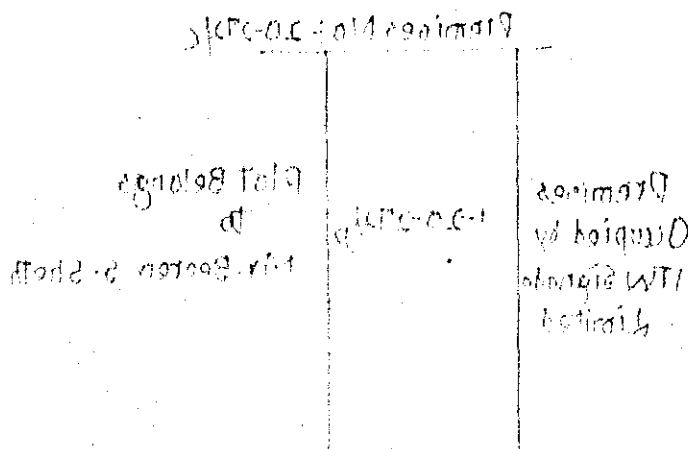 Premises No : 1-20-272/C
Premises
Occupied by
ITW Signode
Limited
1-20-272/D
Plot Belongs
to
Mr. Beeren S. Sheth